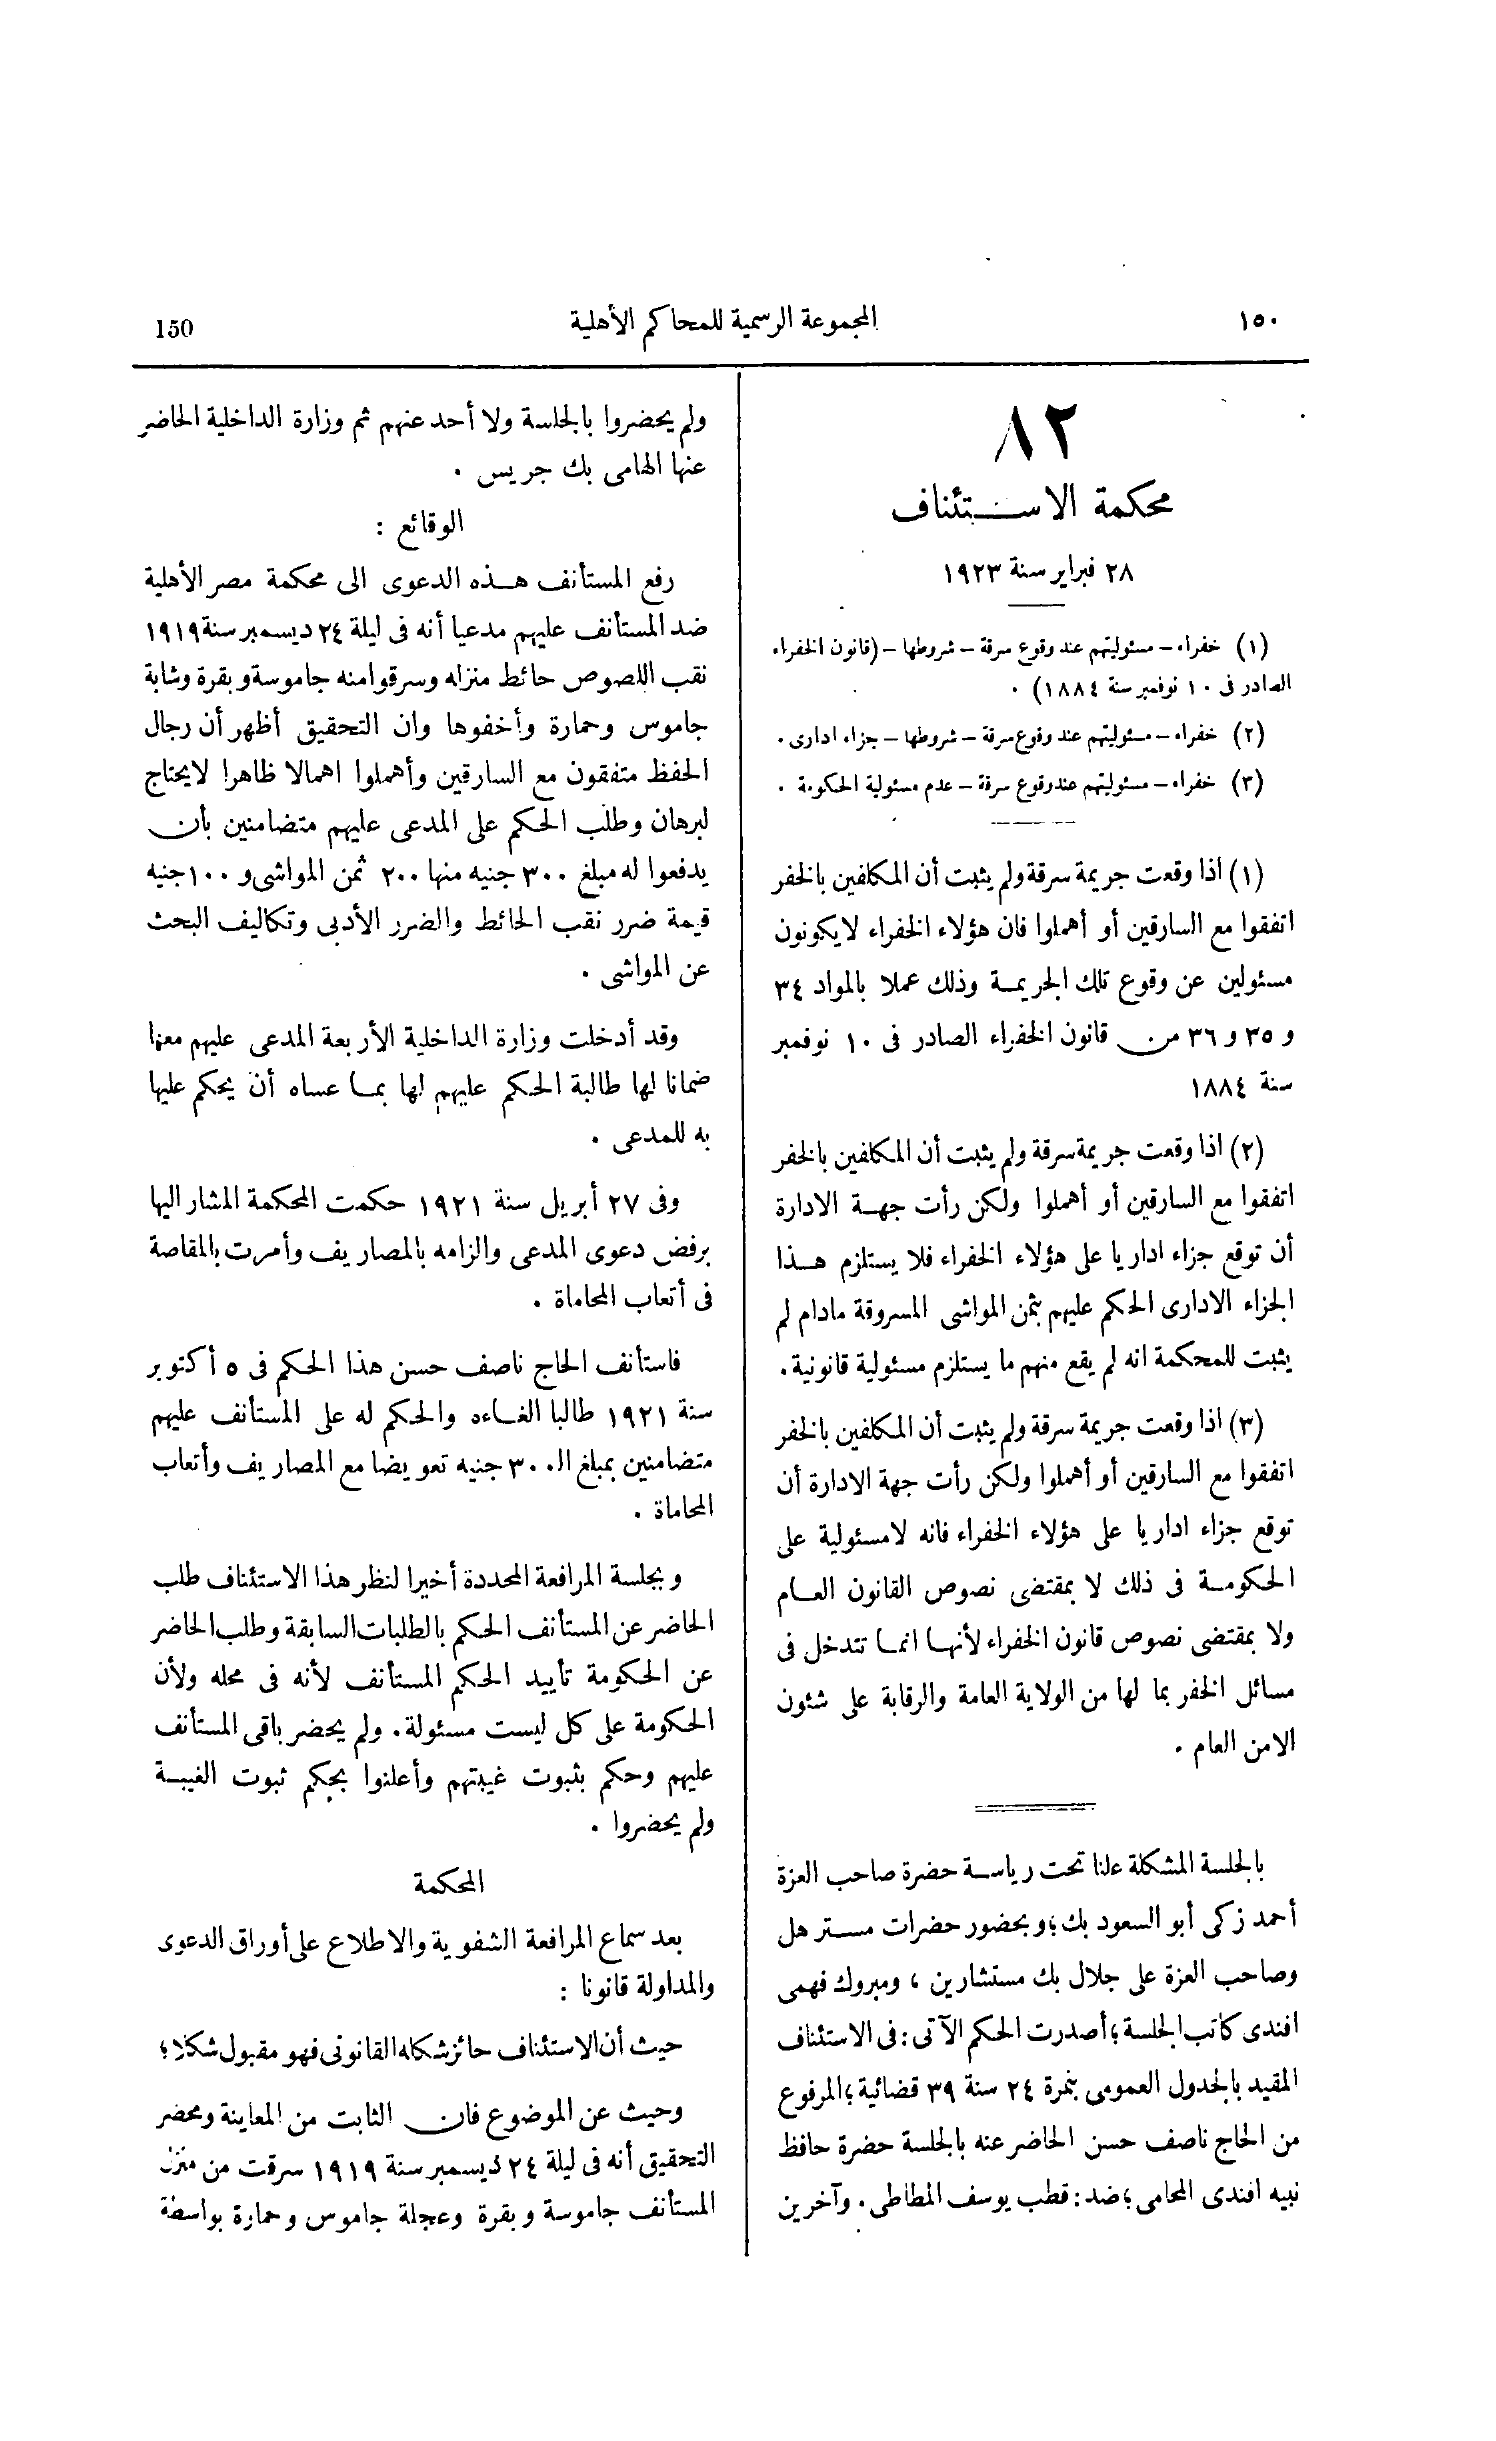 ١٥٠
المجموعة الرسمية للمحاكم الأهلية
150
٨٢
محكمة الاستئناف
٢٨ فبراير سنة ١٩٢٣
(١) خفراء – مسئوليتهم عند وقوع سرقة – شروطها – (قانون الخفراء
الصادر فى ١٠ نوفمبر سنة ١٨٨٤) .
(٢) خفراء – مسئوليتهم عند وقوع سرقة – شروطها – جزاء ادارى .
(٣) خفراء – مسئوليتهم عند وقوع سرقة – عدم مسئولية الحكومة .
(١) اذا وقعت جريمة سرقة ولم يثبت أن المكلفين بالخفر
اتفقوا مع السارقين أو أهملوا فان هؤلاء الخفراء لا يكونون
مسئولين عن وقوع تلك الجريمة وذلك عملا بالمواد ٣٤
و ٣٥ و ٣٦ من قانون الخفراء الصادر فى ١٠ نوفمبر
سنة ١٨٨٤
(٢) اذا وقعت جريمة سرقة ولم يثبت أن المكلفين بالخفر
اتفقوا مع السارقين أو أهملوا ولكن رأت جهة الادارة
أن توقع جزاء اداريا على هؤلاء الخفراء فلا يستلزم هذا
الجزاء الادارى الحكم عليهم بثمن المواشى المسروقة مادام لم
يثبت للمحكمة انه لم يقع منهم ما يستلزم مسئولية قانونية .
(٣) اذا وقعت جريمة سرقة ولم يثبت أن المكلفين بالخفر
اتفقوا مع السارقين أو أهملوا ولكن رأت جهة الادارة أن
توقع جزاء اداريا على هؤلاء الخفراء فانه لا مسئولية على
الحكومة فى ذلك لا بمقتضى نصوص القانون العام
ولا بمقتضى نصوص قانون الخفراء لأنها انما تتدخل فى
مسائل الخفر بما لها من الولاية العامة والرقابة على شئون
الامن العام .
بالجلسة المشكلة علنا تحت رياسة حضرة صاحب العزة
أحمد زكى أبو السعود بك ؛ وبحضور حضرات مستر هل
وصاحب العزة على جلال بك مستشارين ، ومبروك فهمى
افندى كاتب الجلسة ؛ أصدرت الحكم الآتى : فى الاستئناف
المقيد بالجدول العمومى بنمرة ٢٤ سنة ٣٩ قضائية ؛ المرفوع
من الحاج ناصف حسن الحاضر عنه بالجلسة حضرة حافظ
نبيه افندى المحامى ؛ ضد : قطب يوسف المطاطى . وآخرين
ولم يحضروا بالجلسة ولا أحد عنهم ثم وزارة الداخلية الحاضر
عنها الهامى بك جريس .
الوقائع :
رفع المستأنف هذه الدعوى الى محكمة مصر الأهلية
ضد المستأنف عليهم مدعيا أنه فى ليلة ٢٤ ديسمبر سنة ١٩١٩
نقب اللصوص حائط منزله وسرقوا منه جاموسة وبقرة وشابة
جاموس وحمارة وأخفوها وان التحقيق أظهر أن رجال
الحفظ متفقون مع السارقين وأهملوا اهمالا ظاهرا لا يحتاج
لبرهان وطلب الحكم على المدعى عليهم متضامنين بأن
يدفعوا له مبلغ ٣٠٠ جنيه منها ٢٠٠ ثمن المواشى و ١٠٠ جنيه
قيمة ضرر نقب الحائط والضرر الأدبى وتكاليف البحث
عن المواشى .
وقد أدخلت وزارة الداخلية الأربعة المدعى عليهم معها
ضمانا لها طالبة الحكم عليهم لها بما عساه أن يحكم عليها
به للمدعى .
وفى ٢٧ أبريل سنة ١٩٢١ حكمت المحكمة المشار اليها
برفض دعوى المدعى والزامه بالمصاريف وأمرت بالمقاصة
فى أتعاب المحاماة .
فاستأنف الحاج ناصف حسن هذا الحكم فى ٥ أكتوبر
سنة ١٩٢١ طالبا الغاءه والحكم له على المستأنف عليهم
متضامنين بمبلغ الـ ٣٠٠ جنيه تعويضا مع المصاريف وأتعاب
المحاماة .
وبجلسة المرافعة المحددة أخيرا لنظر هذا الاستئناف طلب
الحاضر عن المستأنف الحكم بالطلبات السابقة وطلب الحاضر
عن الحكومة تأييد الحكم المستأنف لأنه فى محله ولأن
الحكومة على كل ليست مسئولة . ولم يحضر باقى المستأنف
عليهم وحكم بثبوت غيبتهم وأعلنوا بحكم ثبوت الغيبة
ولم يحضروا .
المحكمة
بعد سماع المرافعة الشفوية والاطلاع على أوراق الدعوى
والمداولة قانونا :
حيث أن الاستئناف حائز شكله القانونى فهو مقبول شكلا ؛
وحيث عن الموضوع فان الثابت من المعاينة ومحضر
التحقيق أنه فى ليلة ٢٤ ديسمبر سنة ١٩١٩ سرقت من منزل
المستأنف جاموسة وبقرة وعجلة جاموس وحمارة بواسطة